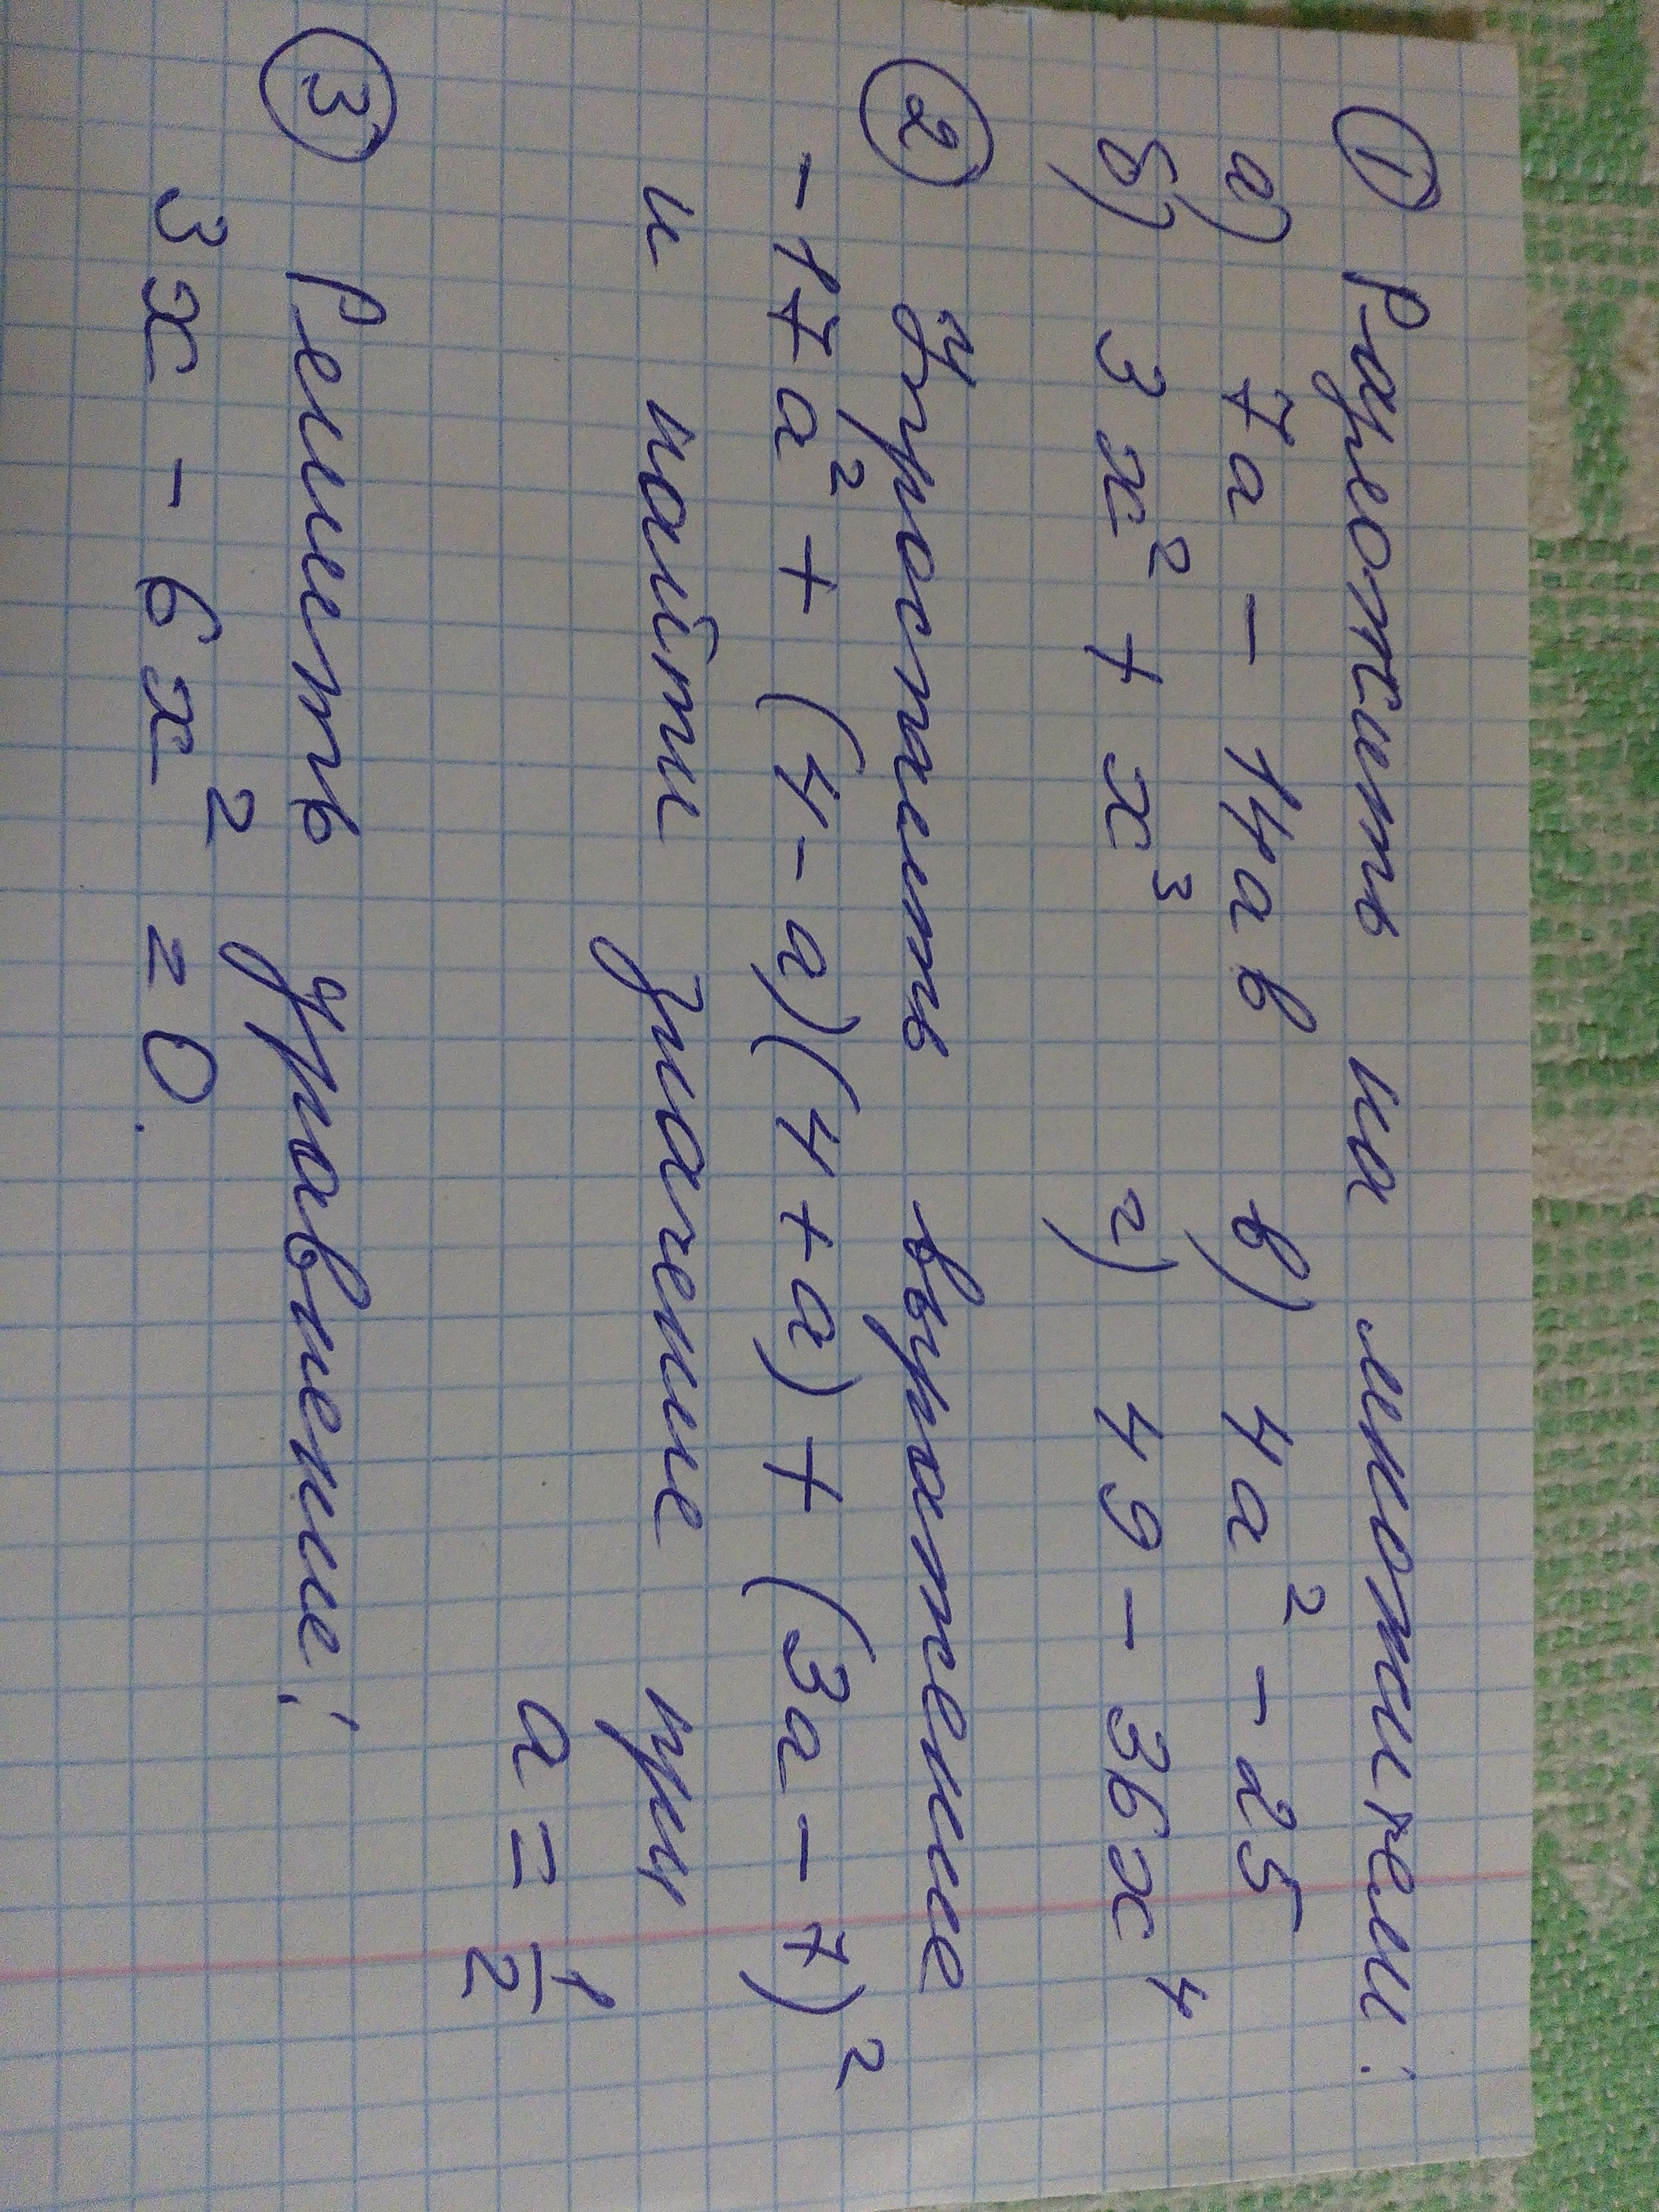 ① Разложить на множители:
а) 7a - 14ab в) 4a² - 25
б) 3x² + x³ г) 49 - 36x⁴
② Упростить выражение
-17a² + (4-a)(4+a) + (3a-7)²
и найти значение при
a = 1/2
③ Решить уравнение:
3x - 6x² = 0.